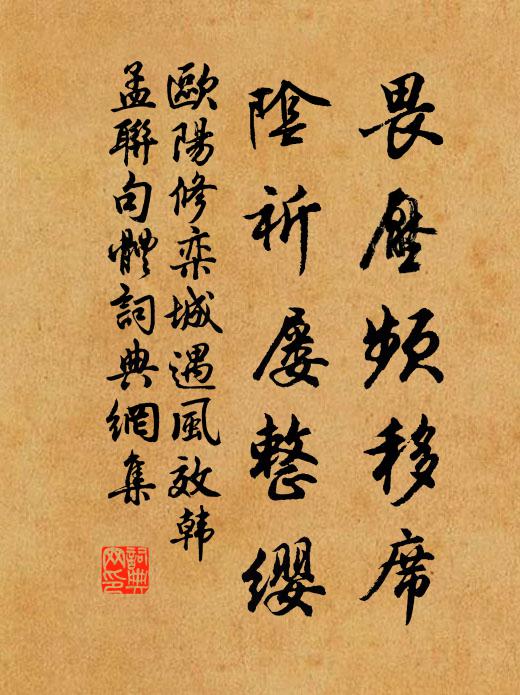 畏壓頻移席
陰祈屢整纓
歐陽修栾城遇風效韩
孟聯句體詞典網集
詞典
网印